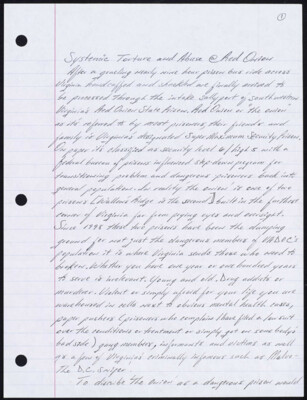 ①
Systemic Torture and Abuse @ Red Onion
After a grueling nearly nine hour prison bus ride across
Virginia handcuffed and shackled we finally arrived to
be processed through the intake Sally port of southwestern
Virginia's Red Onion State Prison. Red Onion or "the onion"
as its referred to by most prisoners, their friends and
family is Virginia's designated Super Maximum Security Prison.
On paper its classified as security level 6/ S with a
federal bureau of prisons influenced step down program for
transitioning problem and dangerous prisoners back into
general population. In reality the onion is one of two
prisons (Wallens Ridge is the second) built in the furthest
corner of Virginia far from prying eyes and oversight.
Since 1998 these two prisons have been the dumping
ground for not just the dangerous members of VADOC's
population it is where Virginia sends those who need to
be broken. Whether you have one year or one hundred years
to serve is irrelevant. Young and old. Drug addicts or
murderer. Violent or simply afraid for your life you are
warehoused in cells next to obvious mental health cases,
paper pushers (prisoners who complain/have filed a law suit
over the conditions or treatment or simply got on some body's
bad side) gang members, informants and victims as well
as a few of Virginia's criminally infamous such as Malvo:
The D.C. Sniper.
To describe the onion as a dangerous prison would